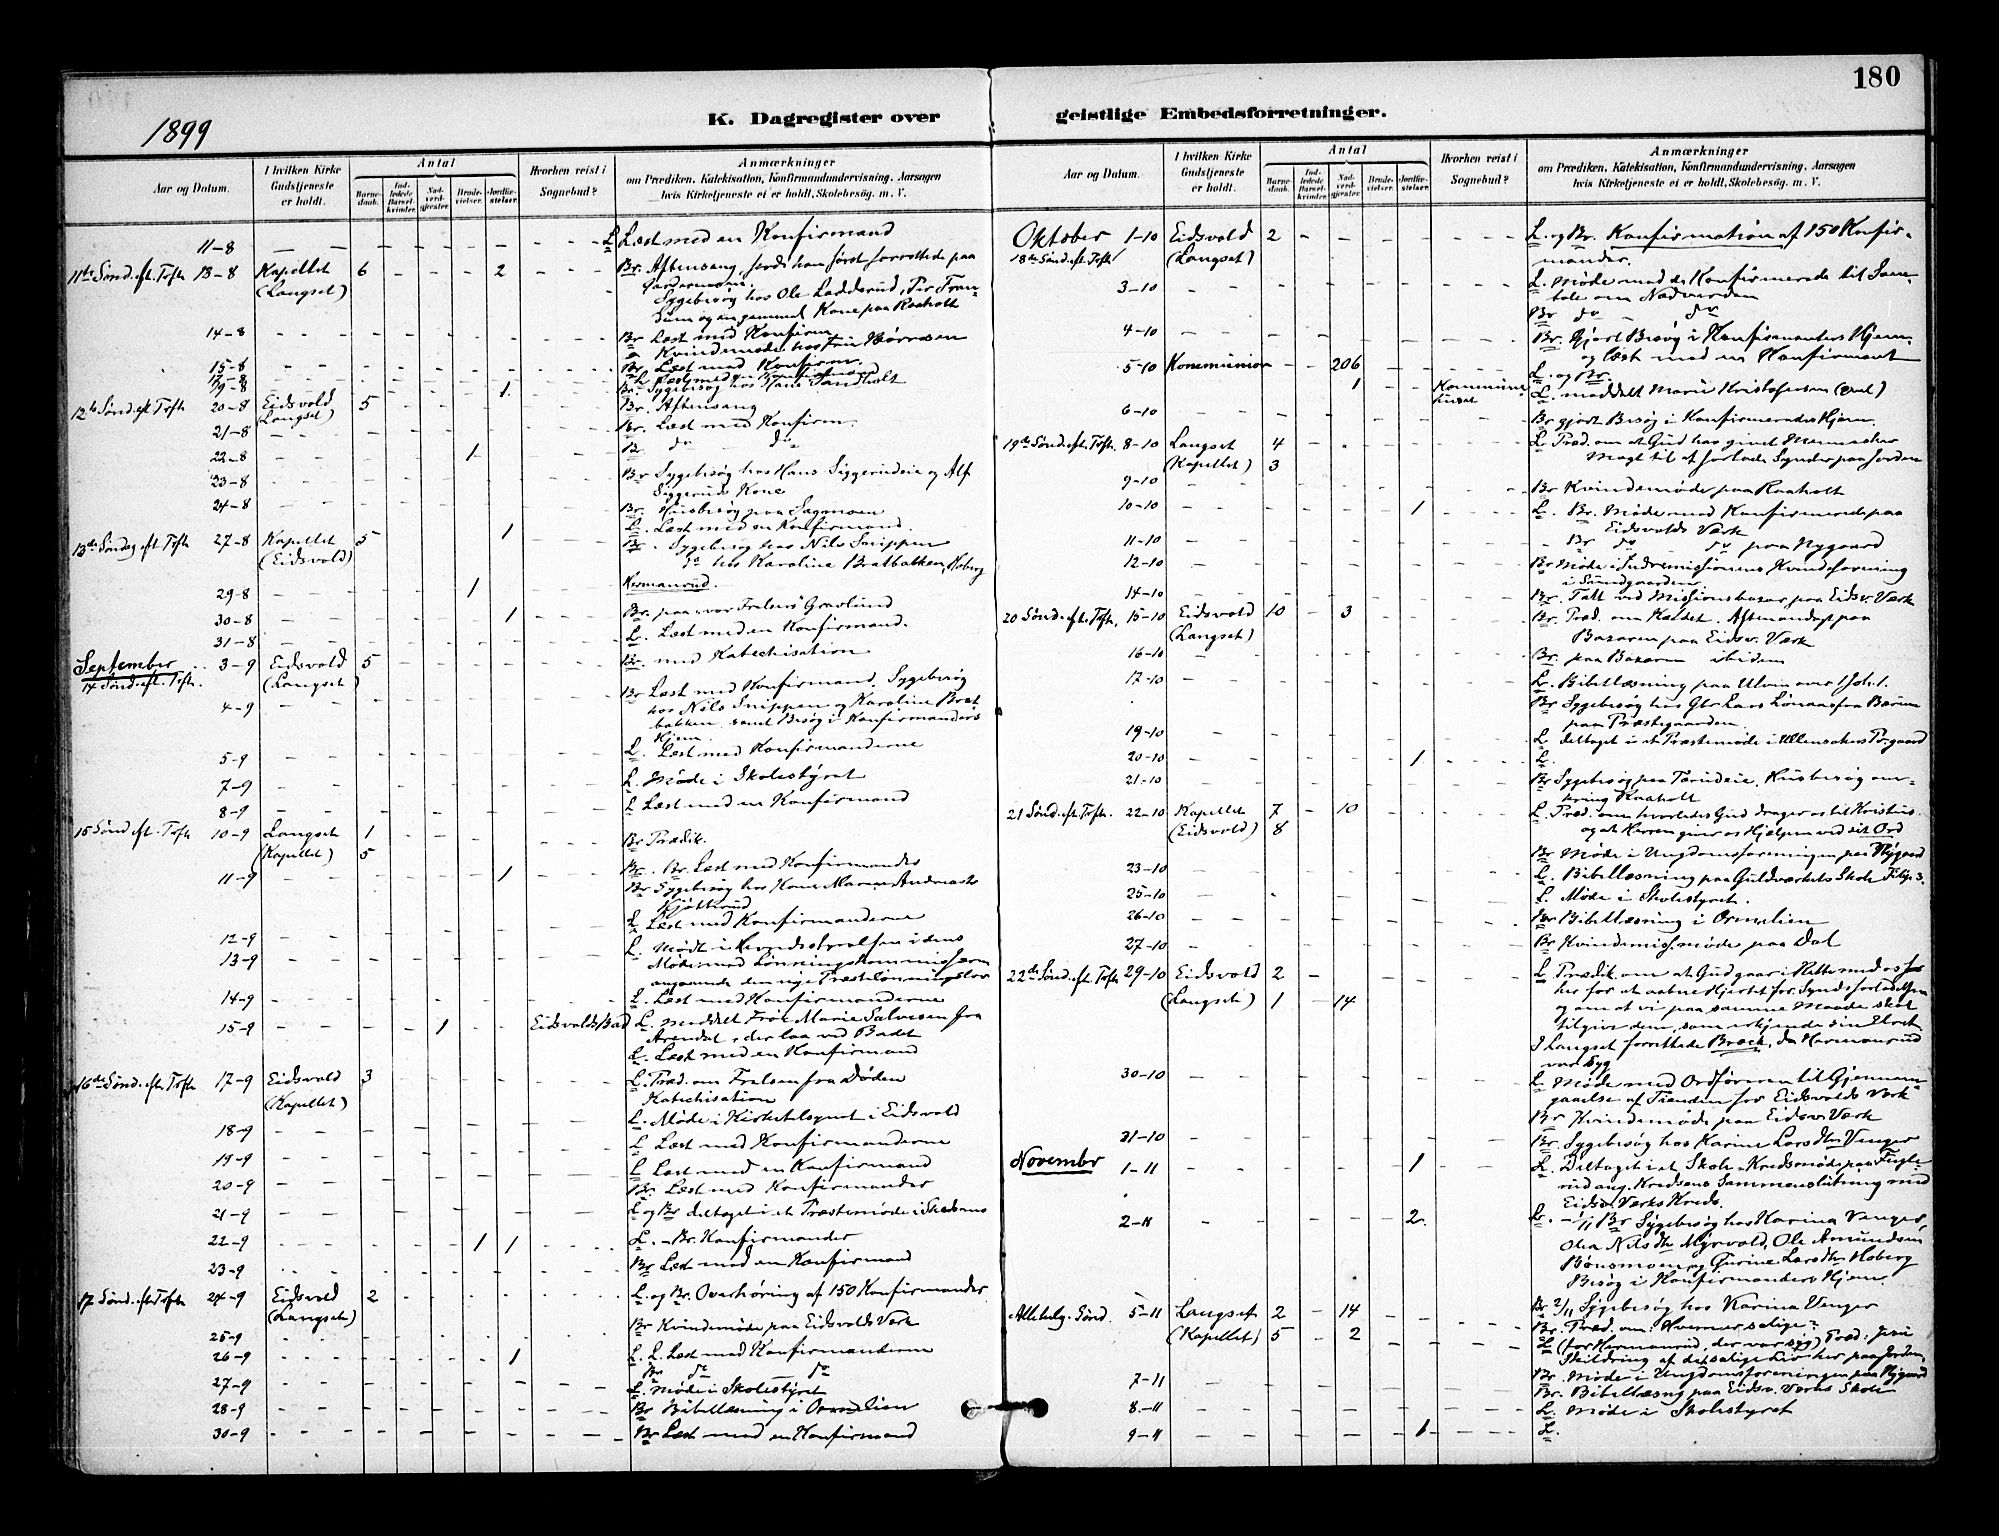 180
1899
K. Dagregister over geistlige Embedsforretninger.
Aar og Datum.
I hvilken Kirke Gudstjeneste er holdt.
Antal
Barnedaab.
Indledede Barselkvinder.
Nadverdgjæster.
Brudevielser.
Jordfæstelser.
Hvorhen reist i Sognebud?
Anmærkninger
om Prædiken, Katekisation, Konfirmandundervisning, Aarsagen
hvis Kirketjeneste ei er holdt, Skolebesøg. m. V.
11-8 L Læst med en Konfirmand
11te Sønd. eft. Trft. 13-8 Kapellet 6 2 Br. Aftensang, fordi han først forrettede paa
(Langset) Gardermoen.
Sygebesøg hos Ole Ladderud, Per
og en gammel Kone paa Raaholt
14-8 Br Læst med Konfirm.
Kvindemøde hos
15-8 Br. Læst med Konfirm.
17-8 L Læst med en Konfirmand
19-8 1 Br. Sygebesøg hos Hans Sandholt
12te Sønd. eft. Trft. 20-8 Eidsvold 5 Br. Aftensang
(Langset)
21-8 Br. Læst med Konfirm.
22-8 1 Br do do
23-8 Br Sygebesøg hos Hans Siggerudeie og Alf
Siggeruds Kone
24-8 Br. Husbesøg paa Sagmoen
L. Læst med en Konfirmand.
13de Søndag eft. Trft 27-8 Kapellet 5 1 Br. Sygebesøg hos Nils Snippen
(Eidsvold) do hos Karoline Bratbakken, Hoberg
29-8 1 Hermanrud.
30-8 1 Br. paa vor Frelsers Gravlund
31-8 L. Læst med en Konfirmand.
September 3-9 Eidsvold 5 Br. med Katechisation
14 Sønd. eft. Trft. (Langset)
4-9 Br Læst med Konfirmand. Sygebesøg
hos Nils Snippen og Karoline Brat
bakken samt Besøg i Konfirmanders
Hjem.
5-9 L. Læst med Konfirmanderne
7-9 L. Møde i Skolestyret
8-9 L Læst med en Konfirmand
15 Sønd eft. Trft 10-9 Langset 1 Br Prædik.
(Kapellet) 5
11-9 1 Br. Br. Læst med Konfirmander
Br Sygebesøg hos Kone Maren Andreasdt
L Læst med Konfirmanderne
12-9 L. Mødt i Herredsstyrelsen i dens
13-9 Møde med Lønningskommissionen
angaaende den nye Præstelønningslov
14-9 L. Læst med Konfirmanderne
15-9 1 Eidsvolds Bad L. meddelt Frøk. Marie Salvesen fra
Arendal, der laa ved Badet
L. Læst med en Konfirmand
16de Sønd. eft. Trft 17-9 Eidsvold 3 L. Præd. om Frelsen fra Døden
(Kapellet) Katechisation
L. Møde i Kirketilsynet i Eidsvold
18-9 L Læst med Konfirmanderne
19-9 L Læst med en Konfirmand
20-9 Br. Læst med Konfirmander
21-9 L og Br deltaget i et Præstemøde i Skedsmo
22-9 1 1 L. - Br. Konfirmander
23-9 Br Læst med en Konfirmand
17 Sønd. eft Trft 24-9 Eidsvold 2 L. og Br. Overhøring af 150 Konfirmander
(Langset) Br Kvindemøde paa Eidsvolds Værk
25-9
26-9 1 L. L. Læst med Konfirmanderne
Br do do
27-9 L. Møde i Skolestyret
28-9 Br Bibellæsning i Ormelien
30-9 Br Læst med en Konfirmand
Aar og Datum.
I hvilken Kirke Gudstjeneste er holdt.
Antal
Barnedaab.
Indledede Barselkvinder.
Nadverdgjæster.
Brudevielser.
Jordfæstelser.
Hvorhen reist i Sognebud?
Anmærkninger
om Prædiken, Katekisation, Konfirmandundervisning, Aarsagen
hvis Kirketjeneste ei er holdt, Skolebesøg. m. V.
Oktober 1-10 Eidsvold 2 L. og Br. Konfirmation af 150 Konfir-
18de Sønd. eft. Trft. (Langset) mander.
3-10 L. Møde med de Konfirmerede til Sam-
tale om Nadverden
Br do do
4-10 Br. Gjort Besøg i Konfirmanters Hjem
og læst med en Konfirmant
5-10 Kommunion 206 L. og Br.
1 Kommune huset L. meddelt Marie Kristofersen (Dal)
6-10 Br gjort Besøg i Konfirmerades Hjem
19de Sønd. eft. Trft. 8-10 Langset 4 L. Præd. om at Gud har givet Mennesker
(Kapellet) 3 Magt til at forlade Synder paa Jorden
9-10 Br Kvindemøde paa Raaholt
10-10 1 L. Br. Møde med Konfirmerede paa
Eidsvolds Værk
11-10 Br do do paa Nygaard
12-10 Br Møde i Indremissionens Kvindeforening
i Sundgaarden
14-10 Br. Talt ved Missionsbazar paa Eidsv. Værk
20 Sønd. eft. Trft. 15-10 Eidsvold 10 3 Br. Præd. om Kaldet. Aftensang paa
(Langset) Bazaren paa Eidsv. Værk
16-10 Br. paa Bazaren ibidem
17-10 L. Bibellæsning paa Ulvin over 1 Joh. 1.
Br Sygebesøg hos Gbr Lars Lønaas fra Bærum
paa Præstegaarden.
19-10 L. deltaget i et Præstemøde i Ullensakers Pr.gaard
20-10 1 L.
21-10 Br Sygebesøg paa Tærudeie, Husbesøg om-
kring Raaholt
21 Sønd. eft. Trft. 22-10 Kapellet 7 10 L. Præd. om hvorledes Gud drager os til Kristus
(Eidsvold) 8 og at Herren giver os Hjælpen ved sit Ord
Br Møde i Ungdomsforeningen paa Nygaard
23-10 L. Bibellæsning paa Guldværkets Skole Filip. 3.
25-10 L. Møde i Skolestyret.
26-10 Br Bibellæsning i Ormelien
27-10 Br Kvindemis. møde paa Dal
22de Sønd. eft Trft 29-10 Eidsvold 2 L Prædik. om at Gud gaar i Rette med os
(Langset) 1 14 her for at aabne Hjertet for Syndsforladelsen
og om at vi paa samme Maade skal
tilgive dem, som erkjende sin Uret.
I Langset forrettede Bræck, da Hermanrud
var Syg
30-10 L Møde med Ordføreren til Gjennem-
gaaelse af Tienden for Eidsvolds Værk
Br Kvindemøde paa Eidsv. Værk
31-10 Br. Sygebesøg hos Karine Larsdtr Venger
Novembr 1-11 1 L. Deltaget i et Skole-Kredsmøde paa Fugle-
rud ang. Kredsens Sammenslutning med
Eidsv. Værks Kreds.
2-11 2. L. - 1/11 Br Sygebesøg hos Karina Venger,
Olea Nilsdtr Myrvold, Ole Amundsen
Bønsmoen og Gurine Larsdtr Hoberg
Besøg i Konfirmanters Hjem.
Allehelg. Sønd. 5-11 Langset 2 14 Br 2/11 Sygebesøg hos Karina Venger
(Kapellet) 5 2 Br. Præd. om: Hvem er salige?
L (for Hermanrud, der var syg) Præd: Jesu
Skildring af det salige Liv her paa Jorden.
7-11 Br. Møde i Ungdomsforeningen paa Nygaard
Br. Bibellæsng paa Eidsv. Værks Skole
8-11 L. Møde i Skolestyret
9-11 1 L.